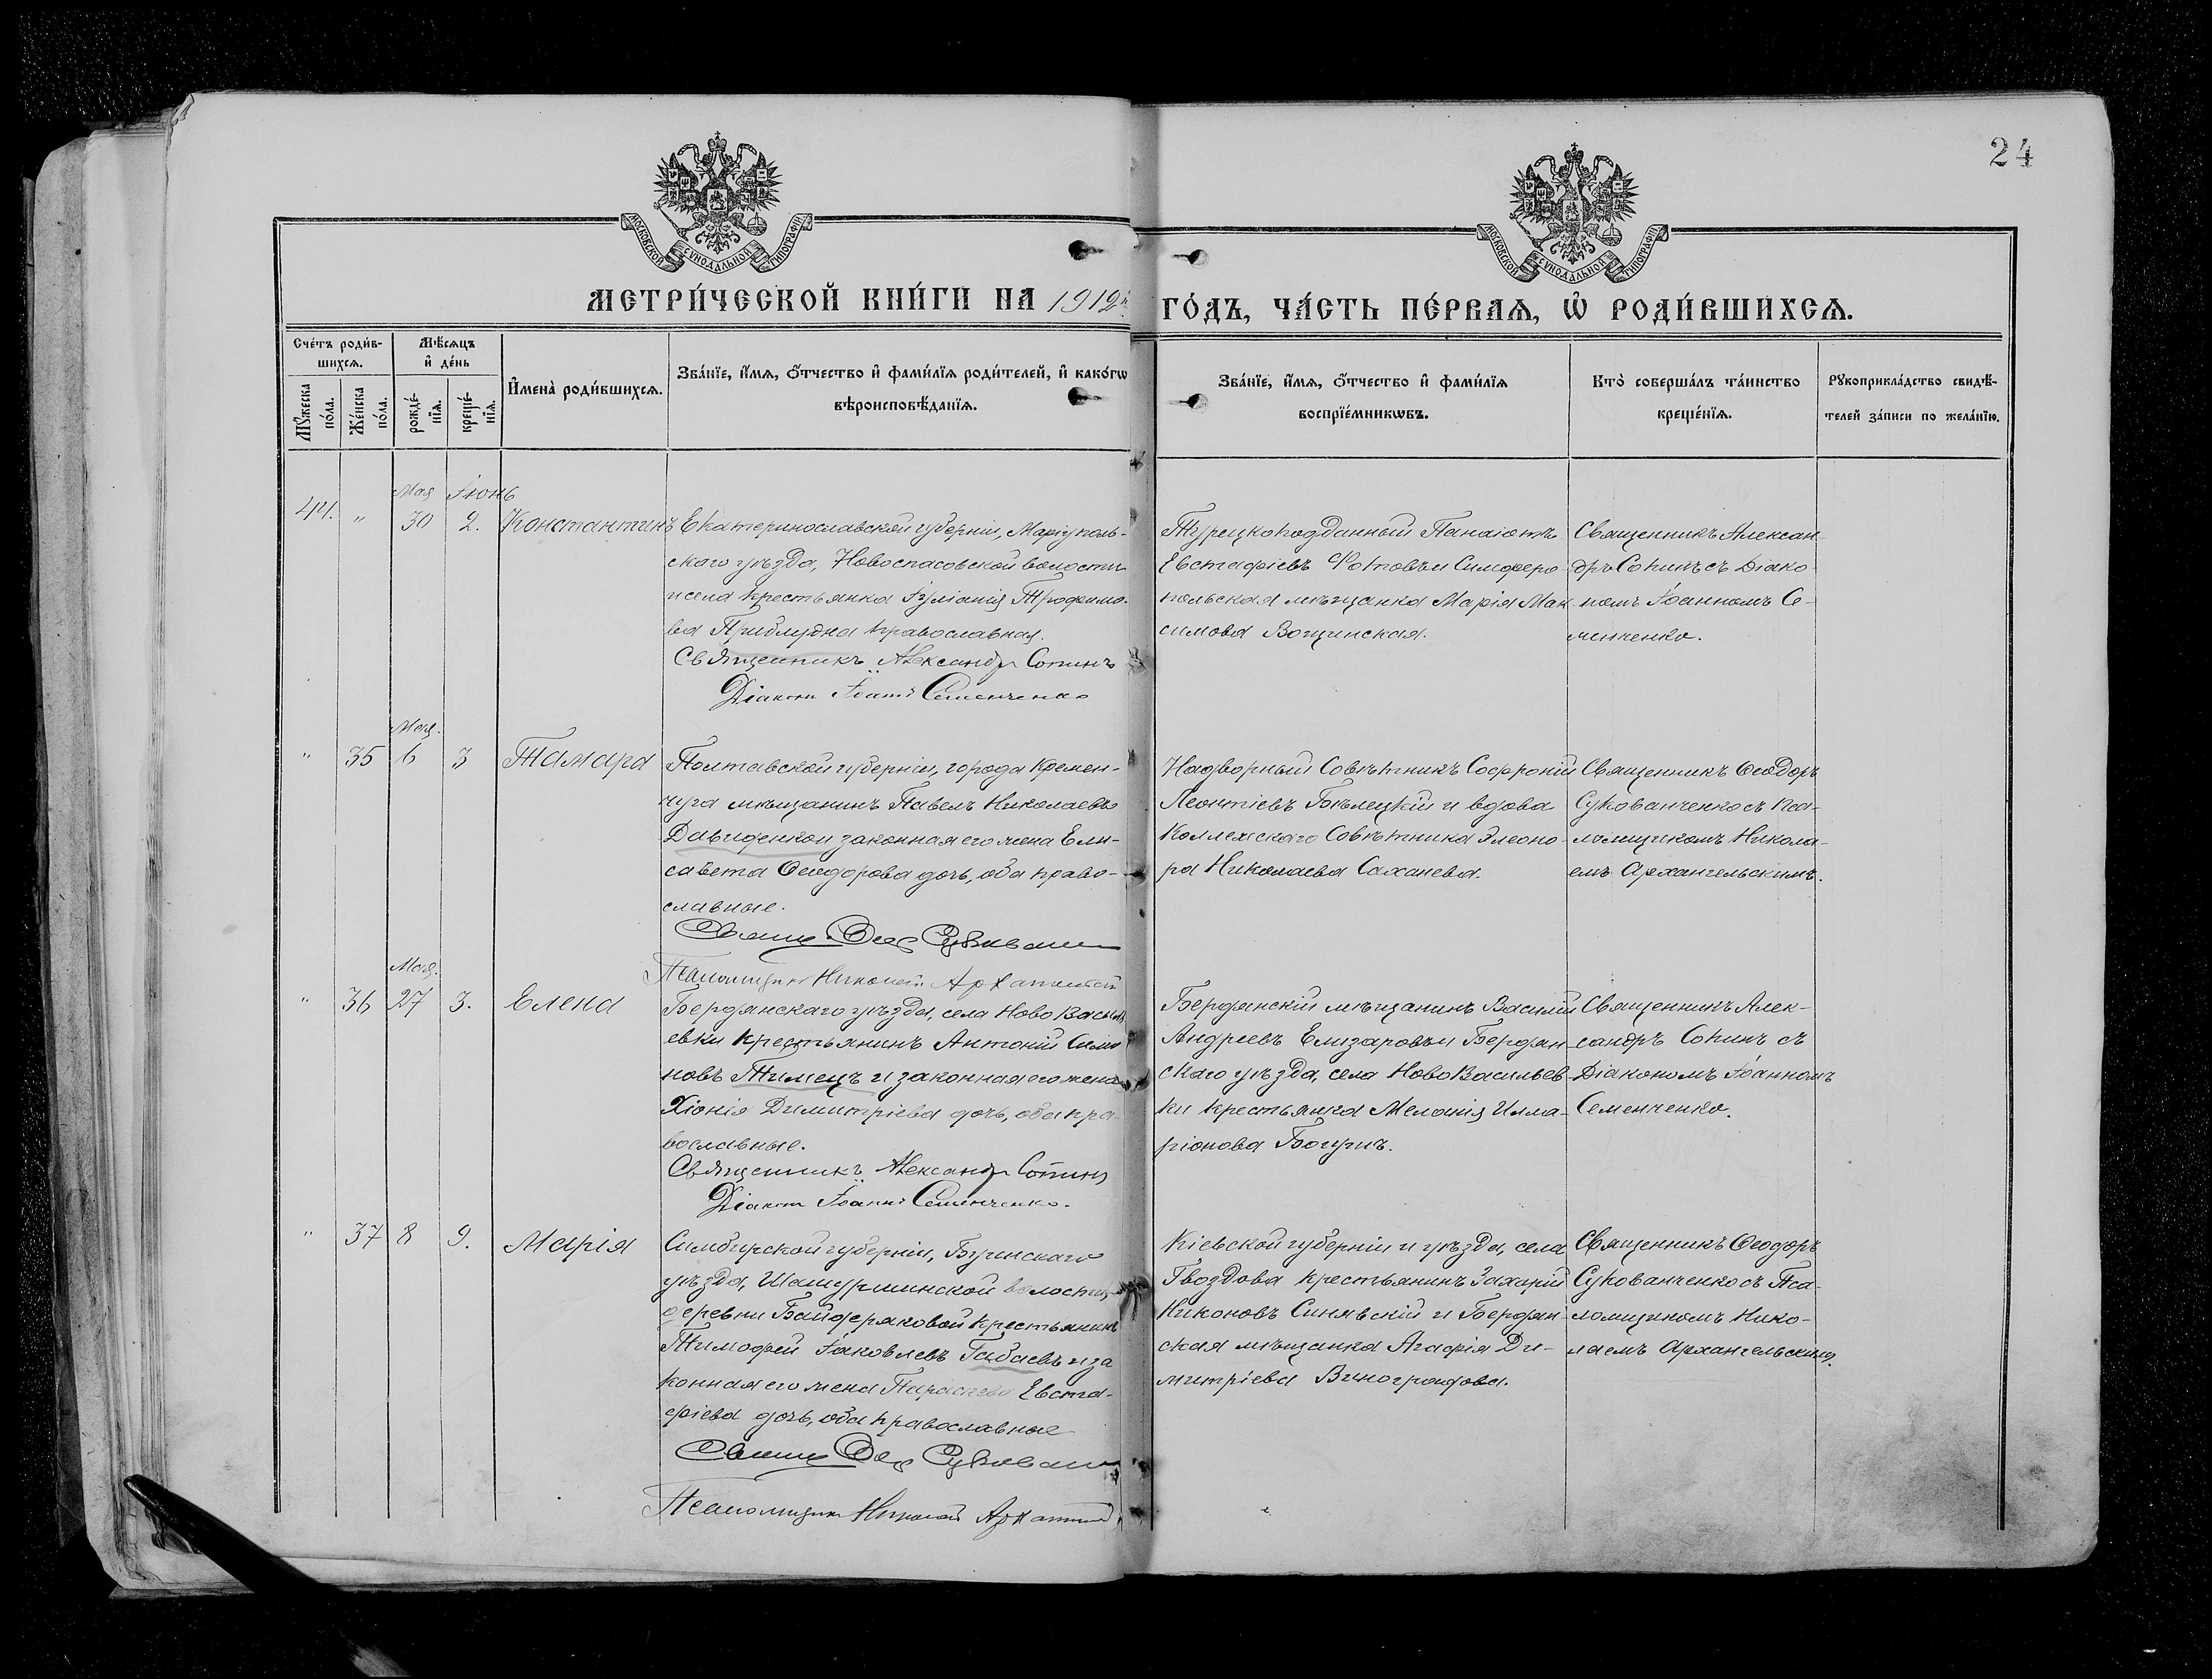 24
МОСКОВСКОЙ СУНОДАЛЬНОЙ ТИПОГРАФІИ
МОСКОВСКОЙ СУНОДАЛЬНОЙ ТИПОГРАФІИ
МЕТРИ́ЧЕСКОЙ КНИ́ГИ НА 1912й ГО́ДЪ, ЧА́СТЬ ПЕ́РВАѦ, Ѡ҆ РОДИ́ВШИХСѦ.
Сче́тъ роди́в-
шихсѧ.
Мѣ́сѧцъ
и҆ де́нь
Мꙋ́жеска по́ла.
Же́нска по́ла.
рожде́-
нїѧ.
креще́-
нїѧ.
И҆мена̀ роди́вшихсѧ.
Зва́нїе, и҆́мѧ, ѻ҆́тчество и҆ фами́лїѧ роди́телей, и҆ како́гѡ
вѣроисповѣ́данїѧ.
Зва́нїе, и҆́мѧ, ѻ҆́тчество и҆ фами́лїѧ
воспрїе́мникѡвъ.
Кто̀ соверша́лъ та́инство
креще́нїѧ.
Рꙋкоприкла́дство свидѣ́-
телей за́писи по жела́нїю.
Мая Іюнь
44. " 30 2. Константинъ
Екатеринославской губерніи, Маріуполь-
скаго уѣзда, Новоспасовской волости
и села крестьянка Іуліанія Трофимо-
ва Приблудна православная.
Священникъ Александръ Сопинъ
Діаконъ Іоаннъ Семенченко
Турецкоподданный Панаіотъ
Евстафіевъ Фотовъ и Симферо-
польская мѣщанка Марія Мак-
симова Вощинская.
Священникъ Алексан-
дръ Сопинъ съ Діако-
номъ Іоанномъ Се-
менченко.
Мая.
" 35 6 3 Тамара
Полтавской губерніи, города Кремен-
чуга мѣщанинъ Павелъ Николаевъ
Давиденко и законная его жена Ели-
савета Ѳеодорова дочь, оба право-
славные.
Псаломщикъ Николай
Надворный Совѣтникъ Софроній
Леонтіевъ Бѣлецкій и вдова
Коллежскаго Совѣтника Элеоно-
ра Николаева Саханева.
Священникъ Ѳеодоръ
Сукованченко съ Пса-
ломщикомъ Никола-
емъ Архангельскимъ.
Мая.
" 36 27 3. Елена
Бердянскаго уѣзда, села Ново Василь-
евки крестьянинъ Антоній Симо
новъ Тимецъ и законная его жена
Хіонія Димитріева дочь, оба пра-
вославные.
Священникъ Александръ Сопинъ
Діаконъ Іоаннъ Семенченко.
Бердянскій мѣщанинъ Василій
Андреевъ Елизаровъ и Бердян-
скаго уѣзда, села Ново Васильев-
ки крестьянка Меланія Илла-
ріонова Богунъ.
Священникъ Алек-
сандръ Сопинъ съ
Діакономъ Іоанномъ
Семенченко.
" 37 8 9. Марія
Симбирской губерніи, Буинскаго
уѣзда, Шамуршинской волости,
деревни Байдеряковой крестьянинъ
Тимофей Іаковлевъ Габаевъ и за
конная его жена Параскева Евста-
фіева дочь, оба православные
Псаломщикъ Николай
Кіевской губерніи и уѣзда, села
Гвоздова крестьянинъ Захарій
Никоновъ Синявскій и Бердян-
ская мѣщанка Агафія Ди-
митріева Виноградова.
Священникъ Ѳеодоръ
Сукованченко съ Пса-
ломщикомъ Нико-
лаемъ Архангельскимъ.